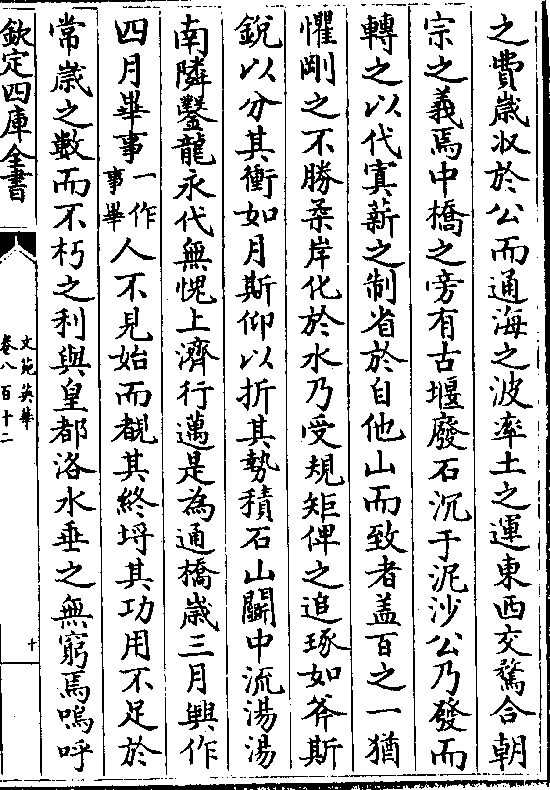 之費嵗收於公而通海之波率土之運東西交騖合朝
宗之義焉中橋之旁有古堰廢石沉于泥沙公乃發而
轉之以代寘薪之制省於自他山而致者盖百之一猶
懼剛之不勝柔岸化於水乃受規矩俾之追琢如斧斯
銳以分其衝如月斯仰以折其勢積石山闢中流湯湯
南隣鑿龍永代無愧上濟行邁是為通橋嵗三月興作
四月畢事一作事畢人不見始而覩其終埒其功用不足於
常嵗之數而不朽之利與皇都洛水垂之無窮焉嗚呼
欽定四庫全書
文苑英華
卷八百十二
十